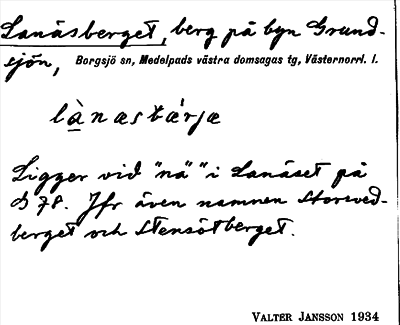 Lanäsberget, berg på byn Grund-
sjön, Borgsjö sn, Medelpads västra domsagas tg, Västernorrl. l.
là̱næstærjæ
Ligger vid "nä" i Lanäset på
d 78. Jfr även namnen Storeved-
berget och Stensötberget.
VALTER JANSSON 1934